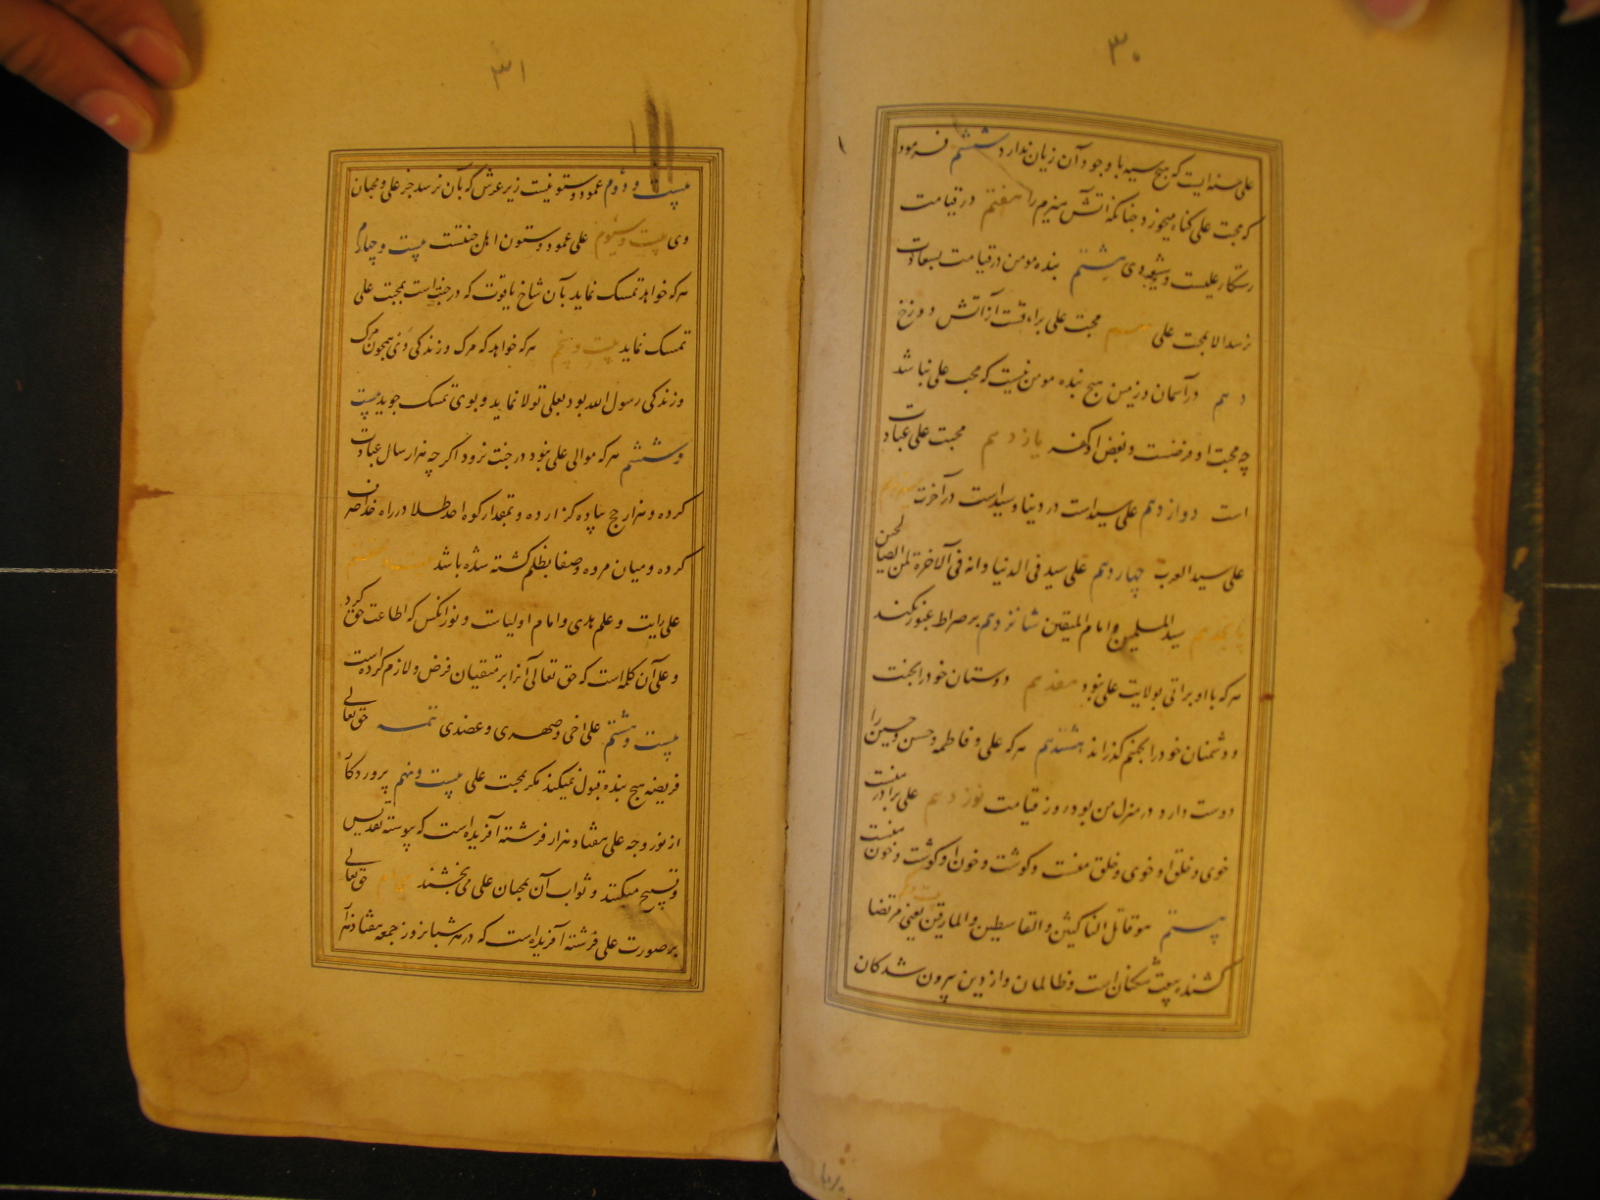 ۳۰
علی حسنه ایست که هیچ سیه با وجود آن زیان ندارد ششم فرمود
که محبت علی کناه میخورد چنانکه آتش هیزم را هفتم در قیامت
رستکار علیست و شیعه وی هشتم بنده مومن در قیامت بسعادت
نرسد الا بمحبت علی نهم محبت علی براءتست از آتش دوزخ
دهم در آسمان و زمین هیچ بنده مومن نیست که محب علی نباشد
چه محبت او فرضست و بغض او کفر یازدهم محبت علی عبادت
است دوازدهم علی سید است در دنیا و سید است در آخرت سیزدهم
علی سید العرب چهاردهم علی سید فی الدنیا و انه فی الآخرة لمن الصالحین
پانزدهم سید المسلمین و امام المتقین شانزدهم بر صراط عبور نکند
هر که با او براتی بولایت علی نبود هفدهم دوستان خود را بجنت
و دشمنان خود را بجهنم گذراند هشتدهم هر که علی و فاطمه و حسن و حسین را
دوست دارد در منزل من بود روز قیامت نوزدهم علی برادر منست
خوی و خلق او خوی و خلق منست و کوشت و خون او کوشت و خون منست
بیستم هو قاتل الناکثین و القاسطین و المارقین یعنی مرتضا
کشنده بیعت شکنان است و ظالمان و از دین بیرون شدکان
۳۱
بیست و دوم عمود و ستونیست زیر عرش که بآن نرسد جز علی و محبان
وی بیست و سیوم علی عمود و ستون اهل جنتست بیست و چهارم
هر که خواهد تمسک نماید بآن شاخ یاقوت که در جنت است بمحبت علی
تمسک نماید بیست و پنجم هر که خواهد که مرک و زندکی وی همچون مرک
و زندکی رسول الله بود بعلی تولا نماید و بوی تمسک جوید بیست
و ششم هر که موالی علی نبود در جنت نرود اکر چه هزار سال عبادت
کرده و هزار حج پیاده کزارده و بمقدار کوه احد طلا در راه خدا صرف
کرده و میان مروه و صفا بظلم کشته شده باشد بیست و هفتم
علی رایت و علم هدی و امام اولیاست و نور انکس که اطاعت حق کرد
و علی آن کلمه است که حق تعالی آنرا بر متقیان فرض و لازم کرده است
بیست و هشتم علی اخی و صهری و عضدی تتمه حق تعالی
فریضه هیچ بنده قبول نمیکند مکر بمحبت علی بیست و نهم پروردکار
از نور وجه علی هفتاد هزار فرشته آفریده است که پیوسته تقدیس
و تسبیح میکنند و ثواب آن بمحبان علی می بخشند سی ام حق تعالی
بر صورت علی فرشته آفریده است که در هر شبانروز جمعه هفتاد هزار